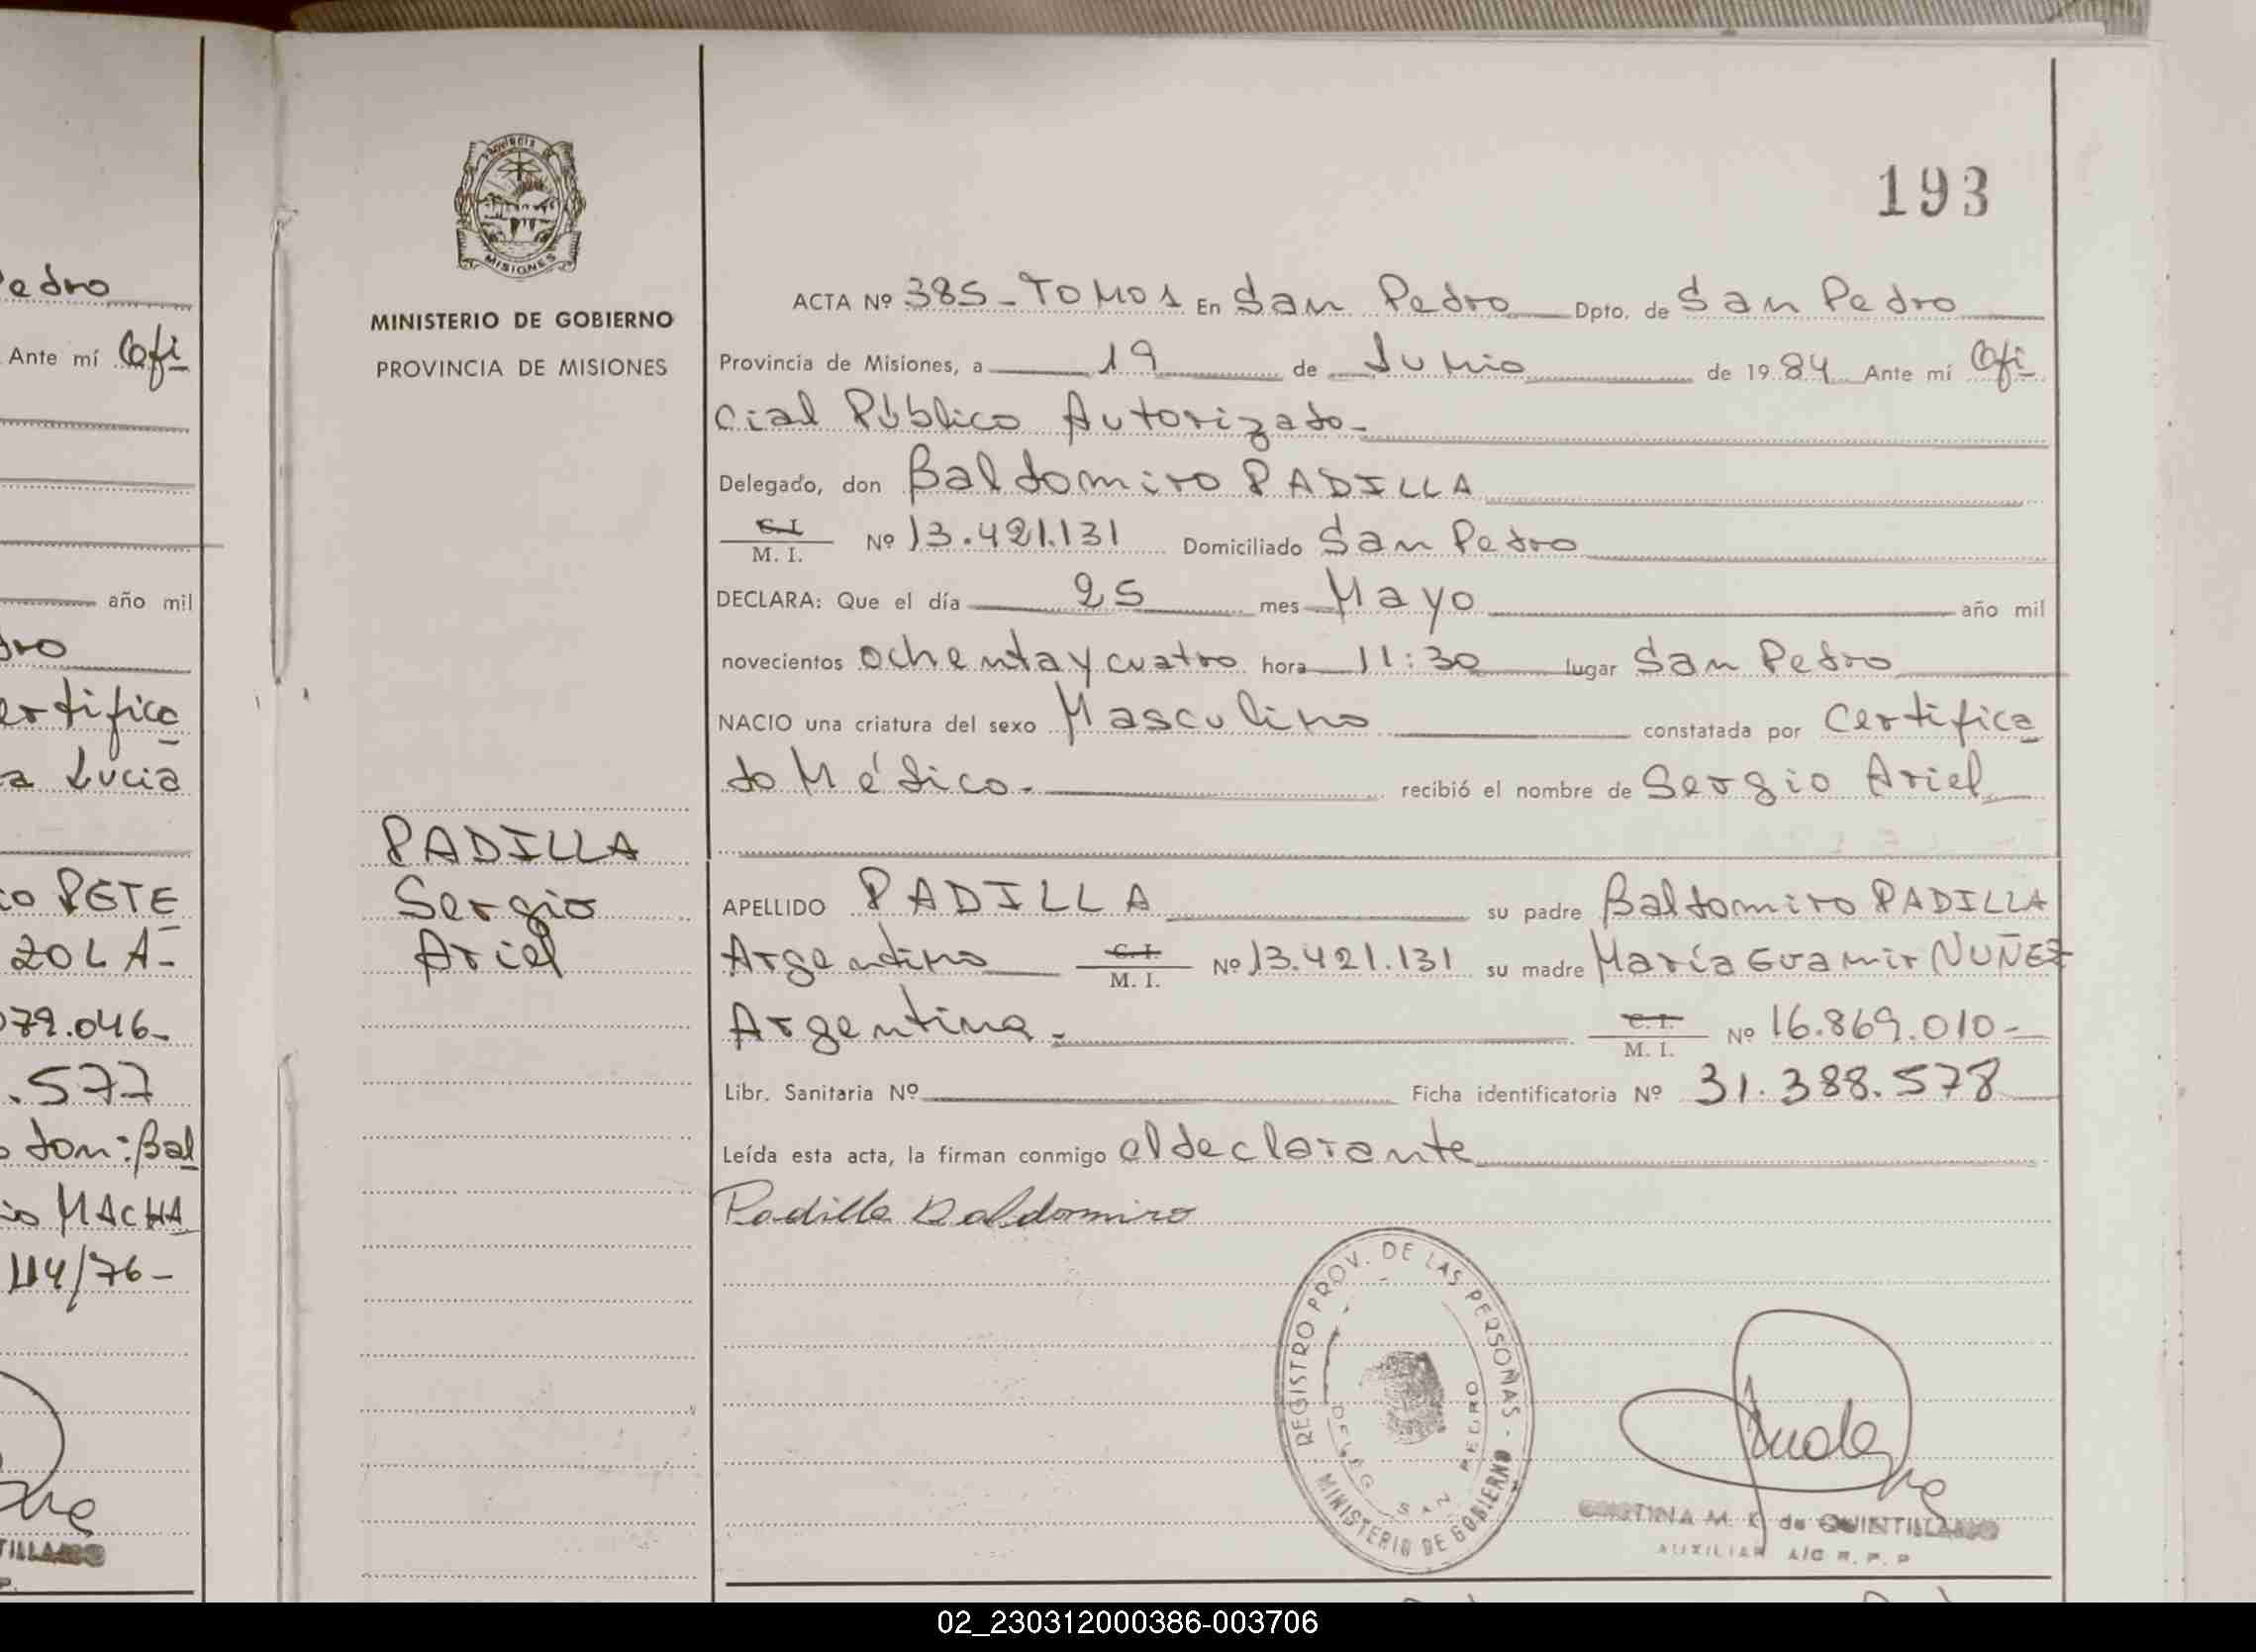 edro
Ante mí Ofi
año mil
dro
ertifica
a Lucia
io PETE
ZOLA-
079.046-
.577
don: Bal
io MACHA
114/76-
TILLANO
P.
PROVINCIA DE
MISIONES
MINISTERIO DE GOBIERNO
PROVINCIA DE MISIONES
PADILLA
Sergio
Ariel
193
ACTA Nº 385-TOMO 1 En San Pedro Dpto. de San Pedro
Provincia de Misiones, a 19 de Junio de 1984 Ante mí Ofi
cial Público Autorizado-
Delegado, don Baldomiro PADILLA
C.I.
M. I. Nº 13.421.131 Domiciliado San Pedro
DECLARA: Que el día 25 mes Mayo año mil
novecientos ochenta y cuatro hora 11:30 lugar San Pedro
NACIO una criatura del sexo Masculino constatada por Certifica
do Médico. recibió el nombre de Sergio Ariel
APELLIDO PADILLA su padre Baldomiro PADILLA
Argentino C.I. M. I. Nº 13.421.131 su madre María NUÑEZ
Argentina. C.I. M. I. Nº 16.869.010-
Libr. Sanitaria Nº Ficha identificatoria Nº 31.388.578
Leída esta acta, la firman conmigo el declarante
Padilla Baldomiro
REGISTRO PROV. DE LAS PERSONAS - MINISTERIO DE GOBIERNO
DELEG. SAN PEDRO
CRISTINA M. K. de QUINTILLANO
AUXILIAR A/C R. P. P
02_230312000386-003706